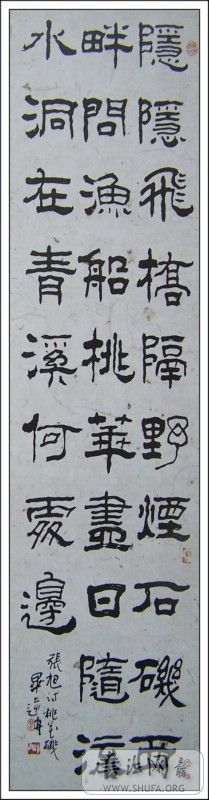 隱隱飛橋隔野煙石磯西
畔問漁船桃華盡日隨流
水洞在青溪何處邊
張旭詩桃花磯
法网
WWW.SHUFA.ORG